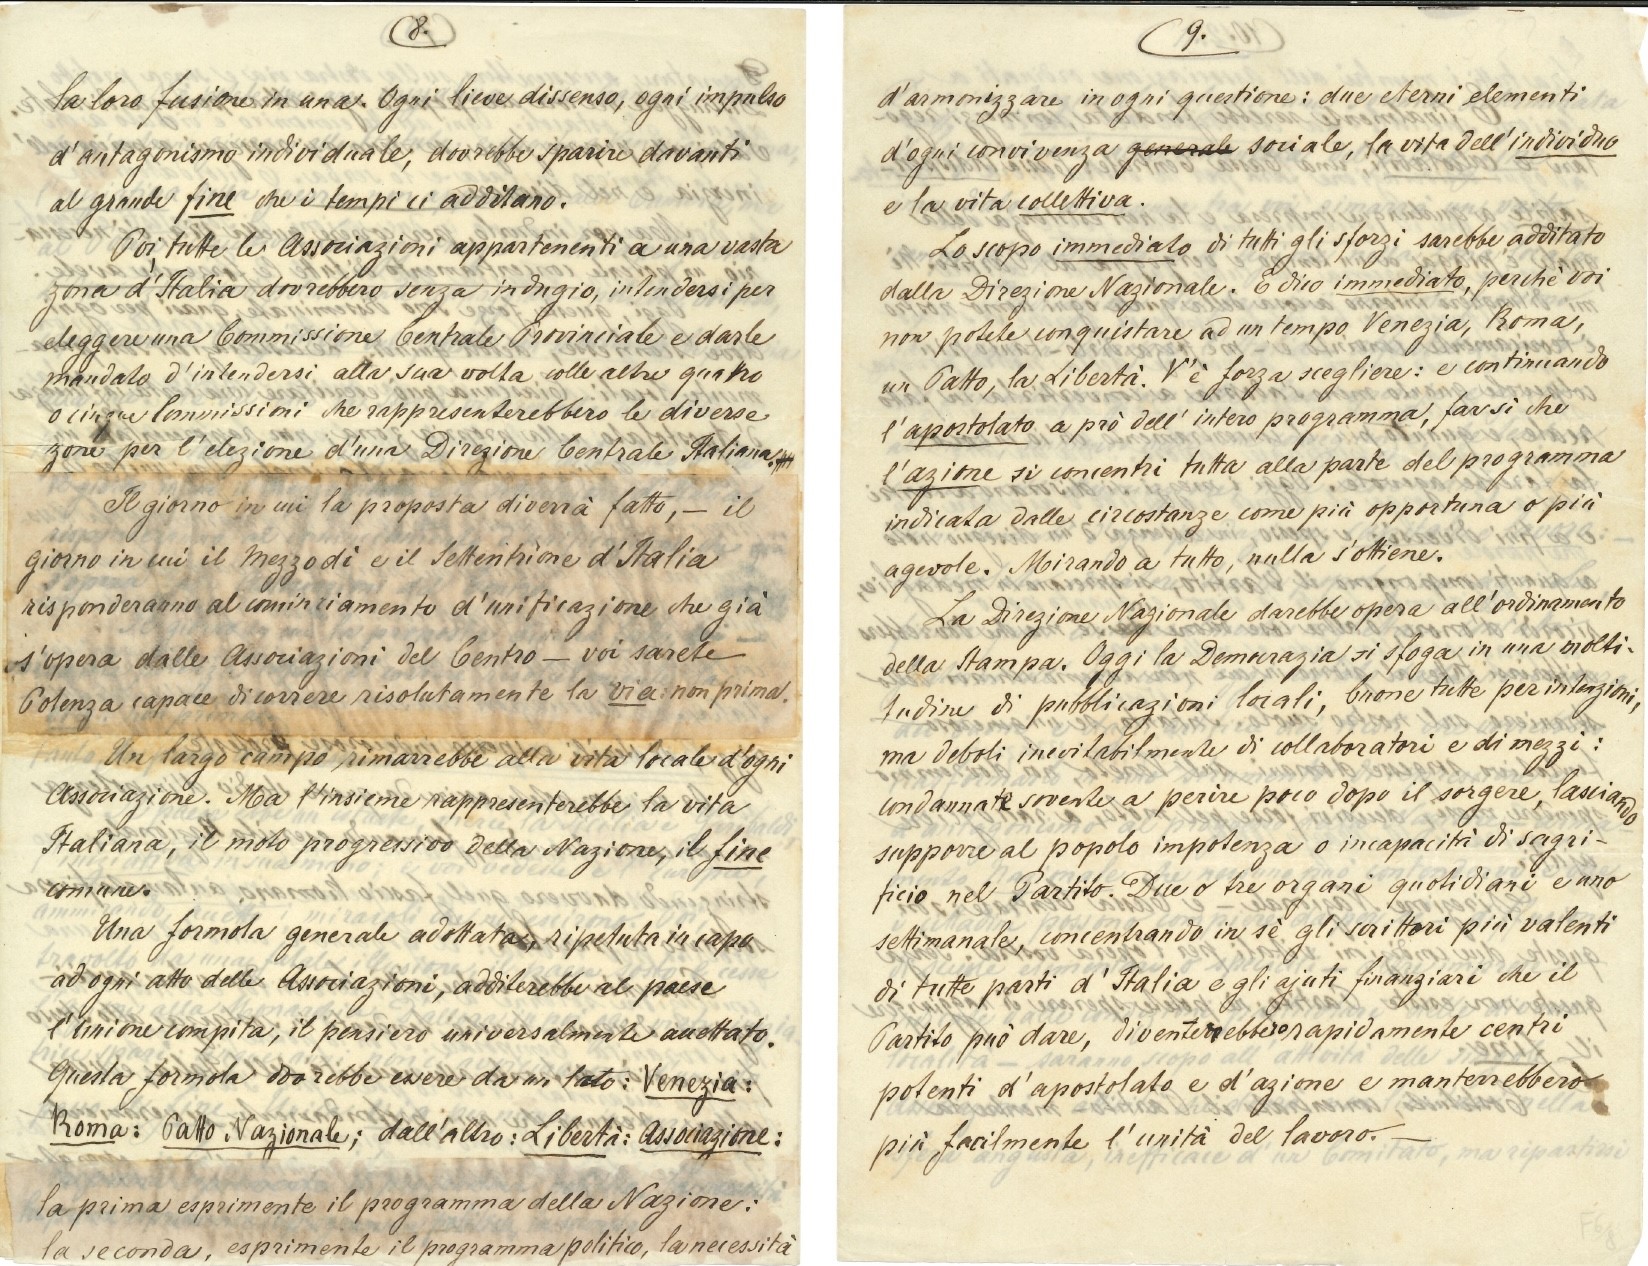 8.
la loro fusione in una. Ogni lieve dissenso, ogni impulso
d'antagonismo individuale, dovrebbe sparire davanti
al grande fine che i tempi ci additano.
Poi, tutte le Associazioni appartenenti a una vasta
zona d'Italia dovrebbero senza indugio, intendersi per
eleggere una Commissione Centrale Provinciale e darle
mandato d'intendersi alla sua volta colle altre quattro
o cinque Commissioni che rappresenterebbero le diverse
zone per l'elezione d'una Direzione Centrale Italiana.
Il giorno in cui la proposta diverrà fatto, — il
giorno in cui il Mezzodì e il Settentrione d'Italia
risponderanno al cominciamento d'unificazione che già
s'opera dalle Associazioni del Centro — voi sarete
Potenza capace di correre risolutamente la via: non prima.
Un largo campo rimarrebbe alla vita locale d'ogni
Associazione. Ma l'insieme rappresenterebbe la vita
Italiana, il moto progressivo della Nazione, il fine
comune.
Una formola generale adottata, ripetuta in capo
ad ogni atto delle Associazioni, additerebbe al paese
l'unione compita, il pensiero universalmente accettato.
Questa formola dovrebbe essere da un lato: Venezia:
Roma: Patto Nazionale; dall'altro: Libertà: Associazione:
la prima esprimente il programma della Nazione:
la seconda, esprimente il programma politico, la necessità
9.
d'armonizzare in ogni questione: due eterni elementi
d'ogni convivenza generale sociale, la vita dell'individuo
e la vita collettiva.
Lo scopo immediato di tutti gli sforzi sarebbe additato
dalla Direzione Nazionale. E dico immediato, perchè voi
non potete conquistare ad un tempo Venezia, Roma,
un Patto, la Libertà. V'è forza scegliere: e continuando
l'apostolato a prò dell'intero programma, far sì che
l'azione si concentri tutta alla parte del programma
indicata dalle circostanze come più opportuna o più
agevole. Mirando a tutto, nulla s'ottiene.
La Direzione Nazionale darebbe opera all'ordinamento
della Stampa. Oggi la Democrazia si sfoga in una molti-
tudine di pubblicazioni locali, buone tutte per intenzioni,
ma deboli inevitabilmente di collaboratori e di mezzi:
condannate sovente a perire poco dopo il sorgere, lasciando
supporre al popolo impotenza o incapacità di sagri-
ficio nel Partito. Due o tre organi quotidiani e uno
settimanale, concentrando in sè gli scrittori più valenti
di tutte parti d'Italia e gli ajuti finanziari che il
Partito può dare, diventerebbero rapidamente centri
potenti d'apostolato e d'azione e manterrebbero
più facilmente l'unità del lavoro. —